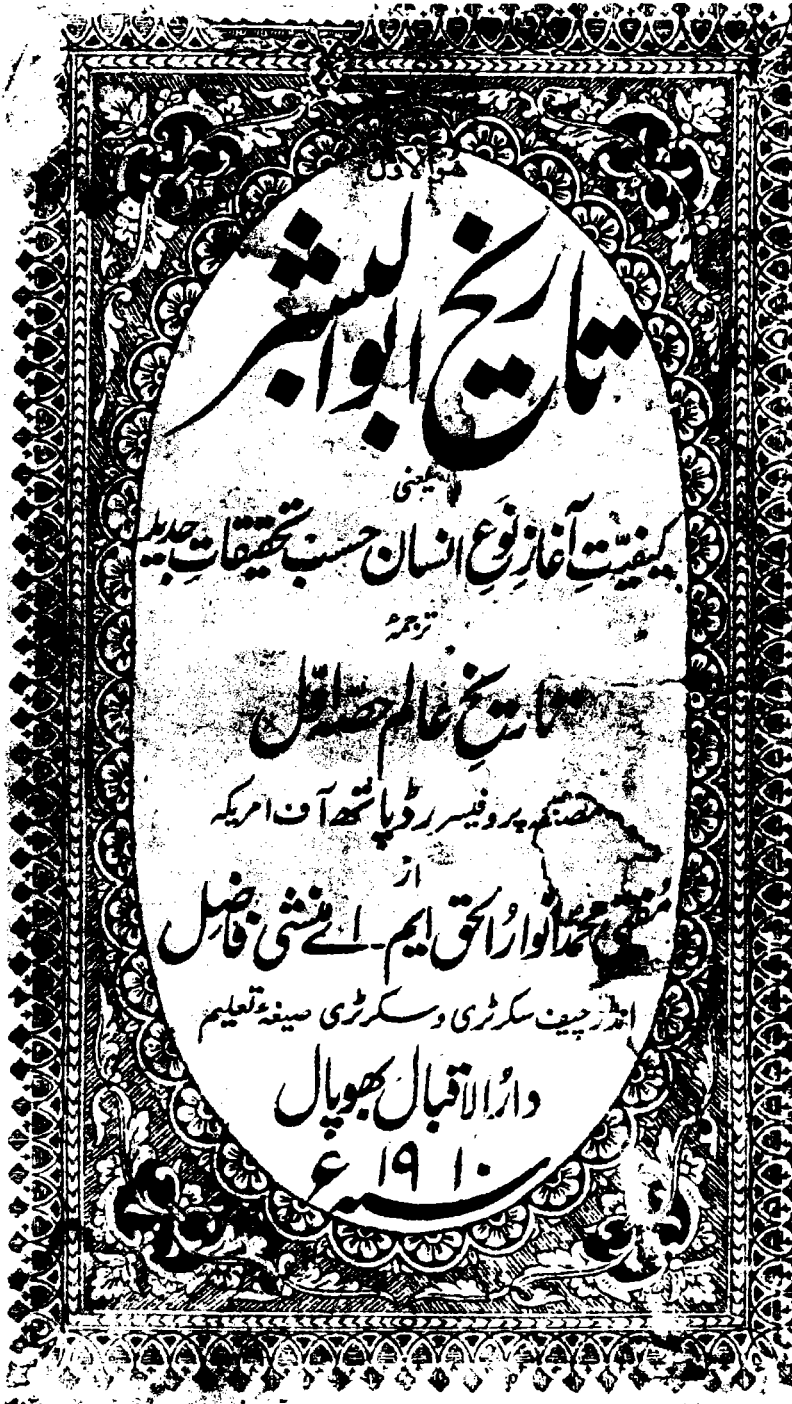 ھوالاول
تاریخ ابوالبشر
یعنی
کیفیّتِ آغازِ نَوعِ انسان حسبِ تحقیقاتِ جدید
ترجمۂ
تاریخِ عالم حصہ اوّل
مصنفہ پروفیسر رڈپاتھ آف امریکہ
از
مُفتی محمد انوارُالحق ایم۔اے مُنشی فاضِل
انڈر چیف سکرٹری و سکرٹری صیغۂ تعلیم
دارُالاقبال بھوپال
سنہ ۱۹۱۰ ء